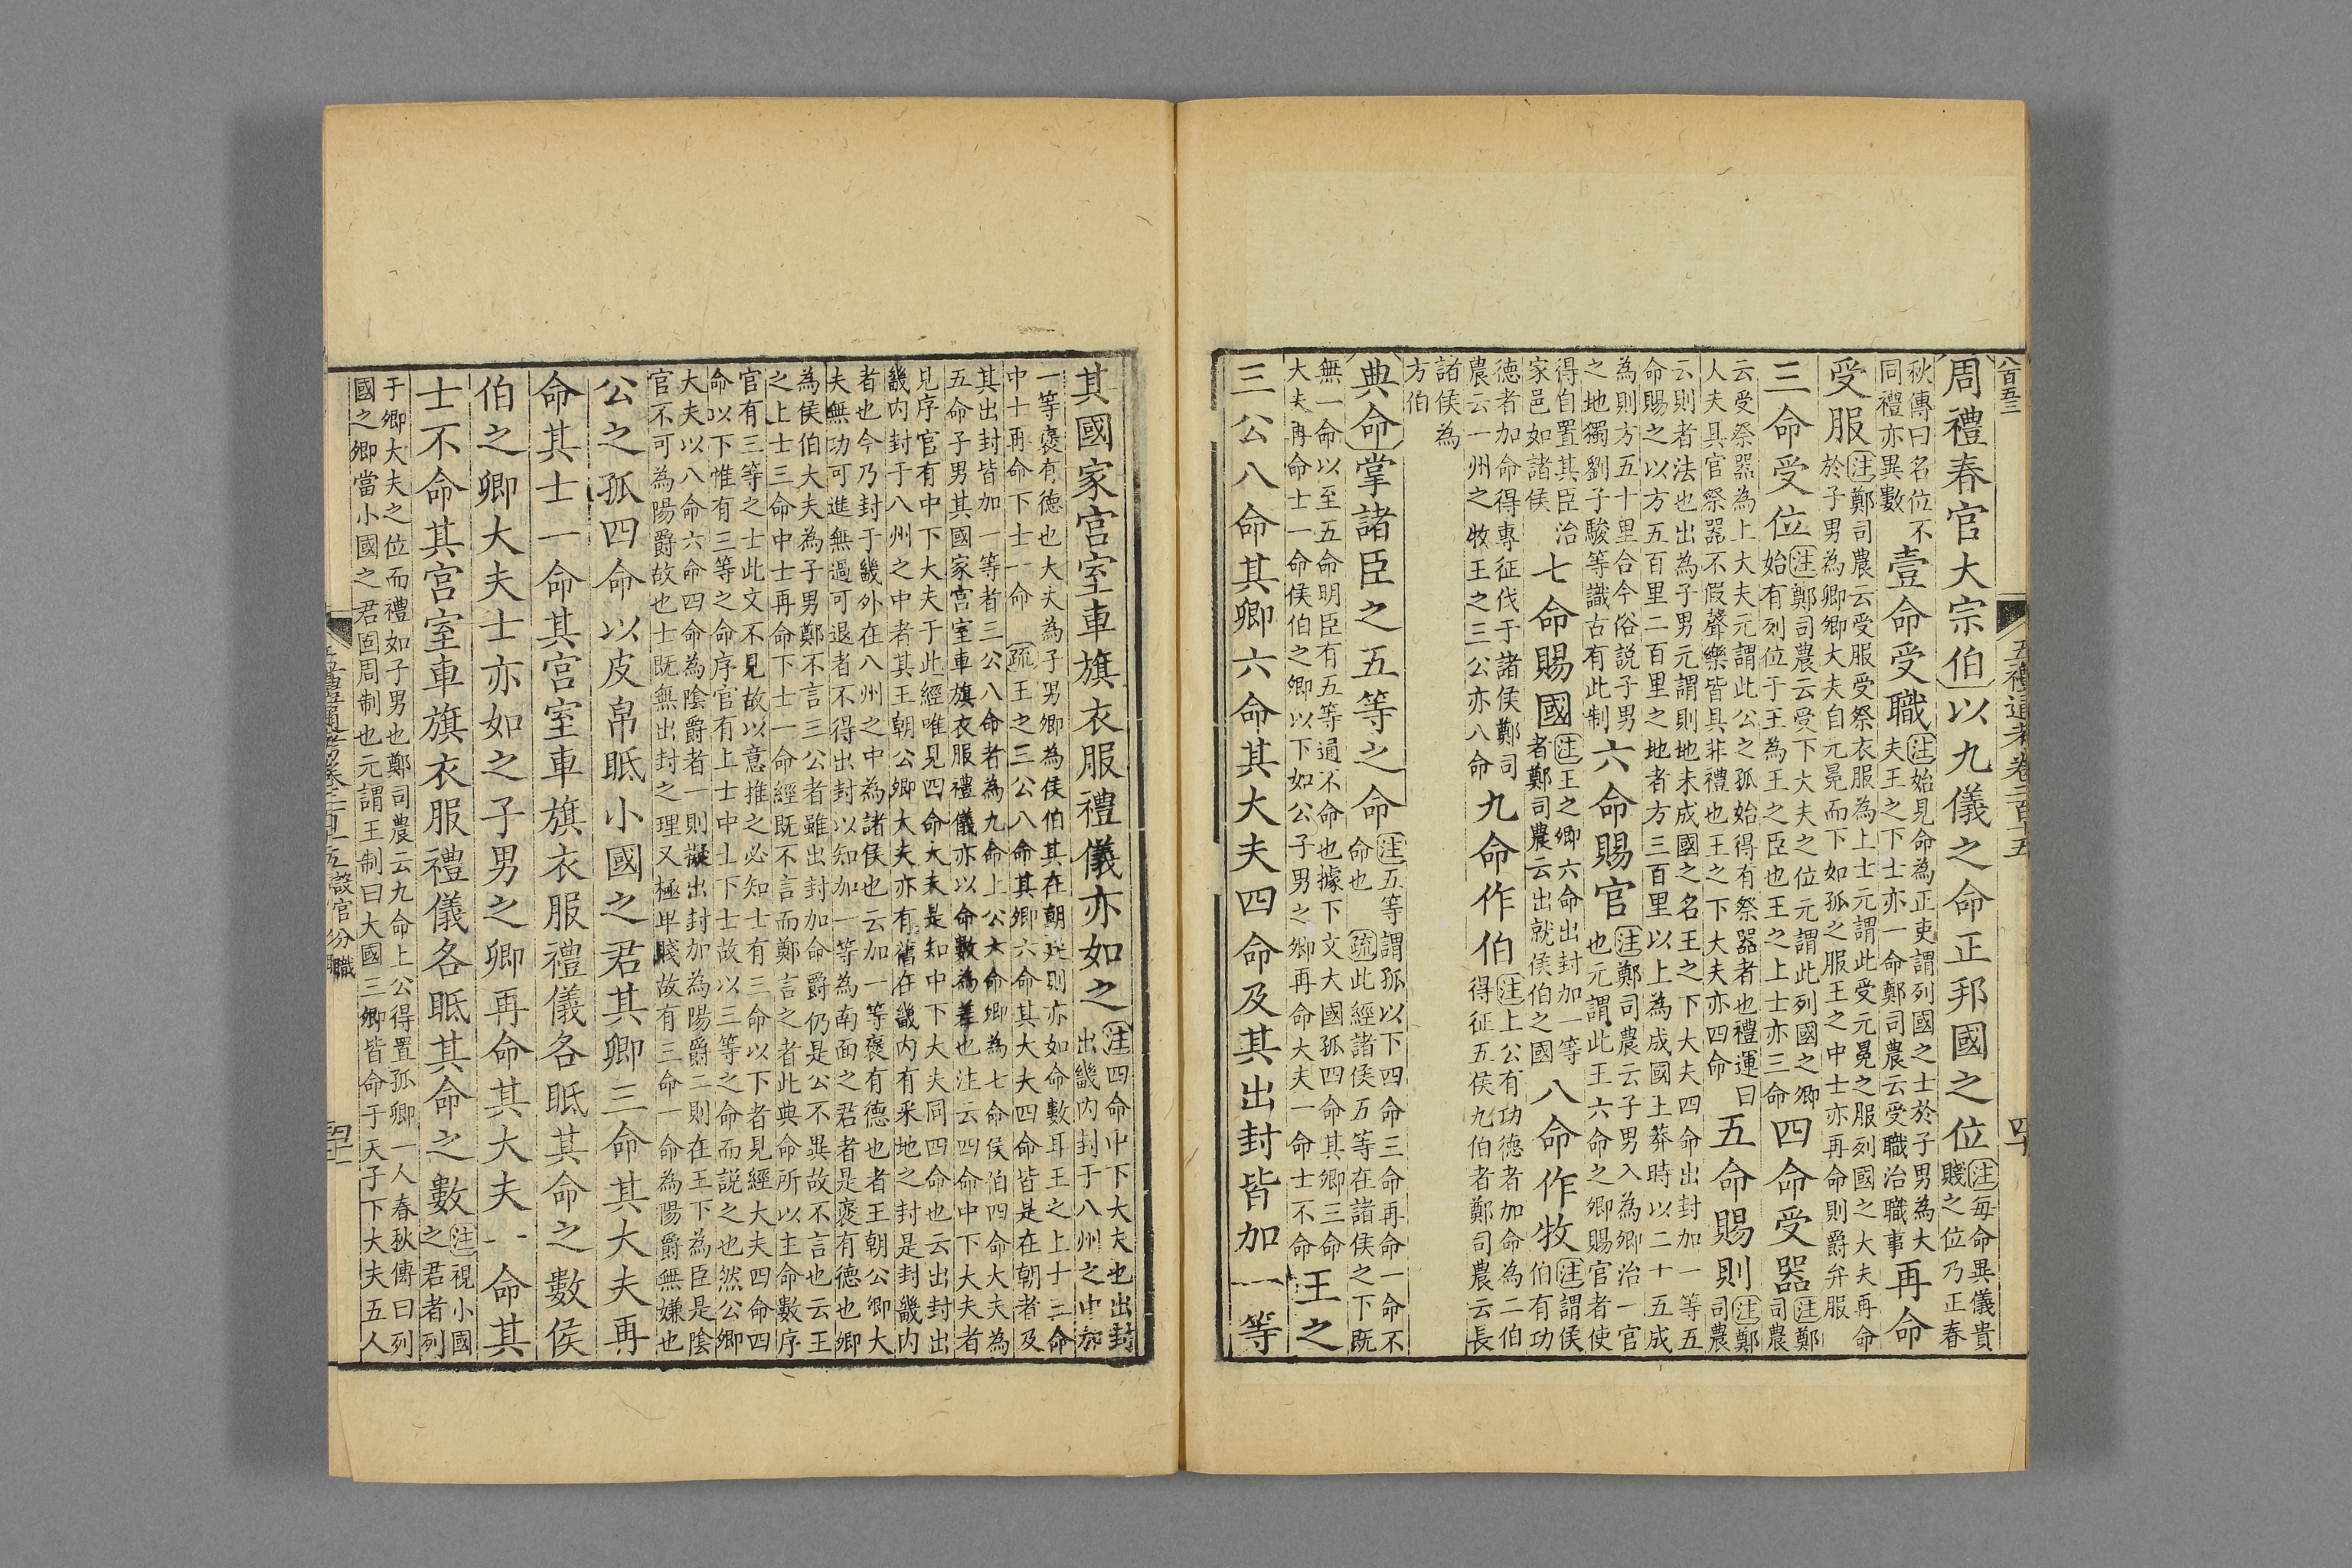 八百五三
五禮通考卷二百十五
四十
周禮春官大宗伯以九儀之命正邦國之位注每命異儀貴賤之位乃正春
秋傳曰名位不同禮亦異數壹命受職注始見命為正吏謂列國之士於子男為大夫王之下士亦一命鄭司農云受職治職事再命
受服注鄭司農云受服受祭衣服為上士元謂此受元冕之服列國之大夫再命於子男為卿卿大夫自元冕而下如孤之服王之中士亦再命則爵弁服
三命受位注鄭司農云受下大夫之位元謂此列國之卿始有列位于王為王之臣也王之上士亦三命四命受器注鄭司農
云受祭器為上大夫元謂此公之孤始得有祭器者也禮運曰人夫具官祭器不假聲樂皆具非禮也王之下大夫亦四命五命賜則注鄭司農
云則者法也出為子男元謂則地未成國之名王之下大夫四命出封加一等五命賜之以方五百里二百里之地者方三百里以上為成國王莽時以二十五成
為則方五十里合今俗説子男之地獨劉子駿等識古有此制六命賜官注鄭司農云子男入為卿治一官也元謂此王六命之卿賜官者使
得自置其臣治家邑如諸侯七命賜國注王之卿六命出封加一等者鄭司農云出就侯伯之國八命作牧注謂侯伯有功
德者加命得專征伐于諸侯鄭司農云一州之牧王之三公亦八命九命作伯注上公有功德者加命為二伯得征五侯九伯者鄭司農云長
諸侯為方伯
典命掌諸臣之五等之命注五等謂孤以下四命三命再命一命不命也疏此經諸侯五等在諸侯之下既
無一命以至五命明臣有五等通不命也據下文大國孤四命其卿三命大夫再命士一命侯伯之卿以下如公子男之卿再命大夫一命士不命王之
三公八命其卿六命其大夫四命及其出封皆加一等
其國家宮室車旗衣服禮儀亦如之注四命中下大夫也出封出畿内封于八州之中加
一等褒有德也大夫為子男卿為侯伯其在朝廷則亦如命數耳王之上士三命中士再命下士一命疏王之三公八命其卿六命其大夫四命皆是在朝者及
其出封皆加一等者三公八命者為九命上公六命卿為七命侯伯四命大夫為五命子男其國家宮室車旗衣服禮儀亦以命數為差也注云四命中下大夫者
見序官有中下大夫于此經唯見四命大夫是知中下大夫同四命也云出封出畿内封于八州之中者其王朝公卿大夫亦有舊在畿内有采地之封是封畿内
者也今乃封于畿外在八州之中為諸侯也云加一等褒有德也者王朝公卿大夫無功可進無過可退者不得出封以知加一等為南面之君者是褒有德也卿
為侯伯大夫為子男鄭不言三公者雖出封加命爵仍是公不異故不言也云王之上士三命中士再命下士一命經既不言而鄭言之者此典命所以主命數序
官有三等之士此文不見故以意推之必知士有三命以下者見經大夫四命四命以下惟有三等之命序官有上士中士下士故以三等之命而説之也然公卿
大夫以八命六命四命為陰爵者一則擬出封加為陽爵二則在王下為臣是陰官不可為陽爵故也士既無出封之理又極卑賤故有三命一命為陽爵無嫌也
公之孤四命以皮帛眡小國之君其卿三命其大夫再
命其士一命其宮室車旗衣服禮儀各眡其命之數侯
伯之卿大夫士亦如之子男之卿再命其大夫一命其
士不命其宮室車旗衣服禮儀各眡其命之數注視小國之君者列
于卿大夫之位而禮如子男也鄭司農云九命上公得置孤卿一人春秋傳曰列國之卿當小國之君固周制也元謂王制曰大國三卿皆命于天子下大夫五人
五禮通考卷二百十五設官分職
四十一